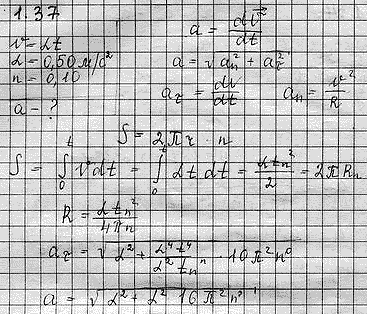 1.37
v = αt
α = 0,50 м/с²
n = 0,10
a - ?
a = dv⃗/dt
a = √aₙ² + a_τ²
a_τ = dv/dt  aₙ = v²/R
S = 2πr · n
S = ∫₀ᵗ v dt = ∫₀ᵗ αt dt = αtₙ²/2 = 2πRn
R = αtₙ²/4πn
a_τ = √α² + α⁴t⁴/α²tₙⁿ · 10π²n⁰
a = √α² + α² 16π²n²